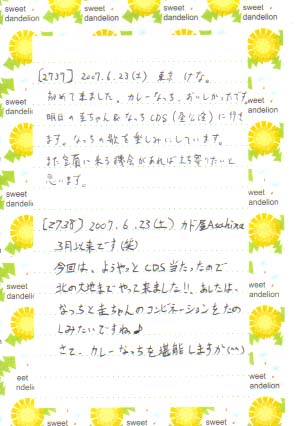 sweet dandelion sweet dandelion sweet dandelion
[2737] 2007.6.23(土) 東京 けな。
初めて来ました。カレーなっち、おいしかったです。
明日の圭ちゃん&なっちCDSに行き
ます。なっちの歌を楽しみにしています。
また室蘭に来る機会があれば立ち寄りたいと
思います。
[2738] 2007.6.23(土) カド屋Asahina
3月以来です(笑)
今回は、ようやっとCDS当たったので
北の大地までやって来ました!! あしたは、
なっちと圭ちゃんのコンビネーションをたの
しみたいですね♪
さて、カレーなっちを堪能しますか(^^)
sweet dandelion sweet dandelion